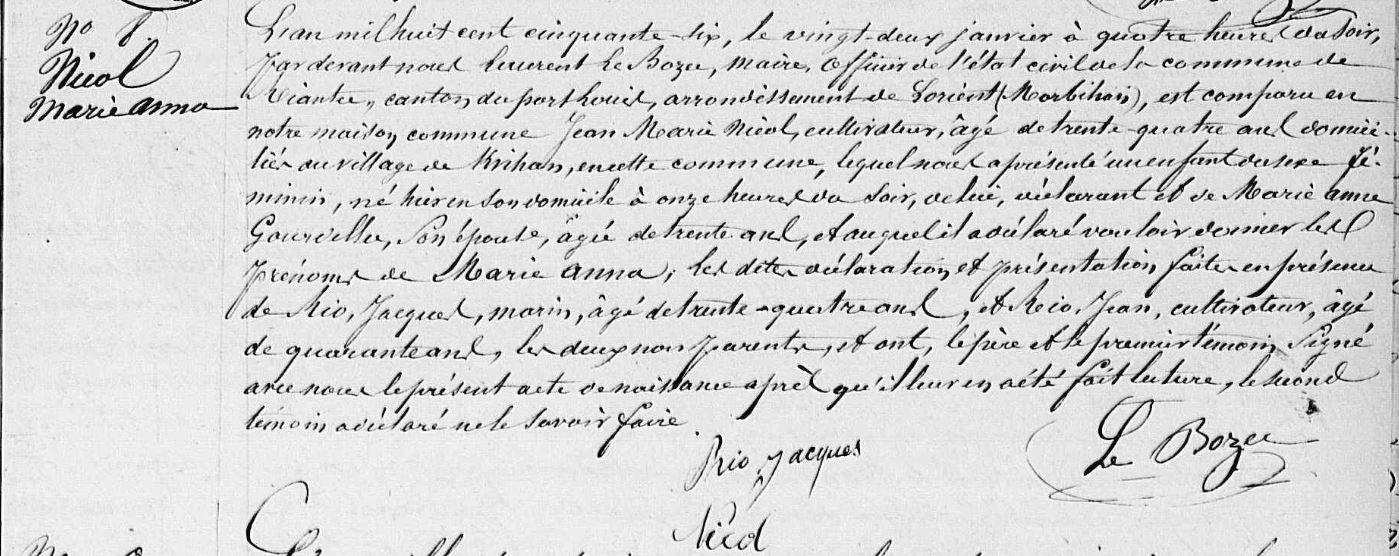 N° 8.
Nicol
Marie anna
L'an mil huit cent cinquante-six, le vingt-deux janvier à quatre heures du soir,
Par devant nous Laurent Le Bozec, maire, officier de l'état civil de la commune de
Riantec, canton du port Louis, arrondissement de Lorient (Morbihan), est comparu en
notre maison commune Jean Marie Nicol, cultivateur, âgé de trente-quatre ans domici-
lié au village de Krihan, en cette commune, lequel nous a présenté un enfant du sexe fé-
minin, né hier en son domicile à onze heures du soir, de lui, déclarant et de Marie anne
Gourvellec, son épouse, âgée de trente ans, et auquel il a déclaré vouloir donner les
prénoms de Marie anna; les dites déclaration et présentation faites en présence
de Rio, Jacques, marin, âgé de trente-quatre ans, et Rio, Jean, cultivateur, âgé
de quarante ans, les deux non parents, et ont, le père et le premier témoin, signé
avec nous le présent acte de naissance après qu'il leur en a été fait lecture, le second
témoin a déclaré ne le savoir faire
Rio Jacques
Le Bozec
Nicol